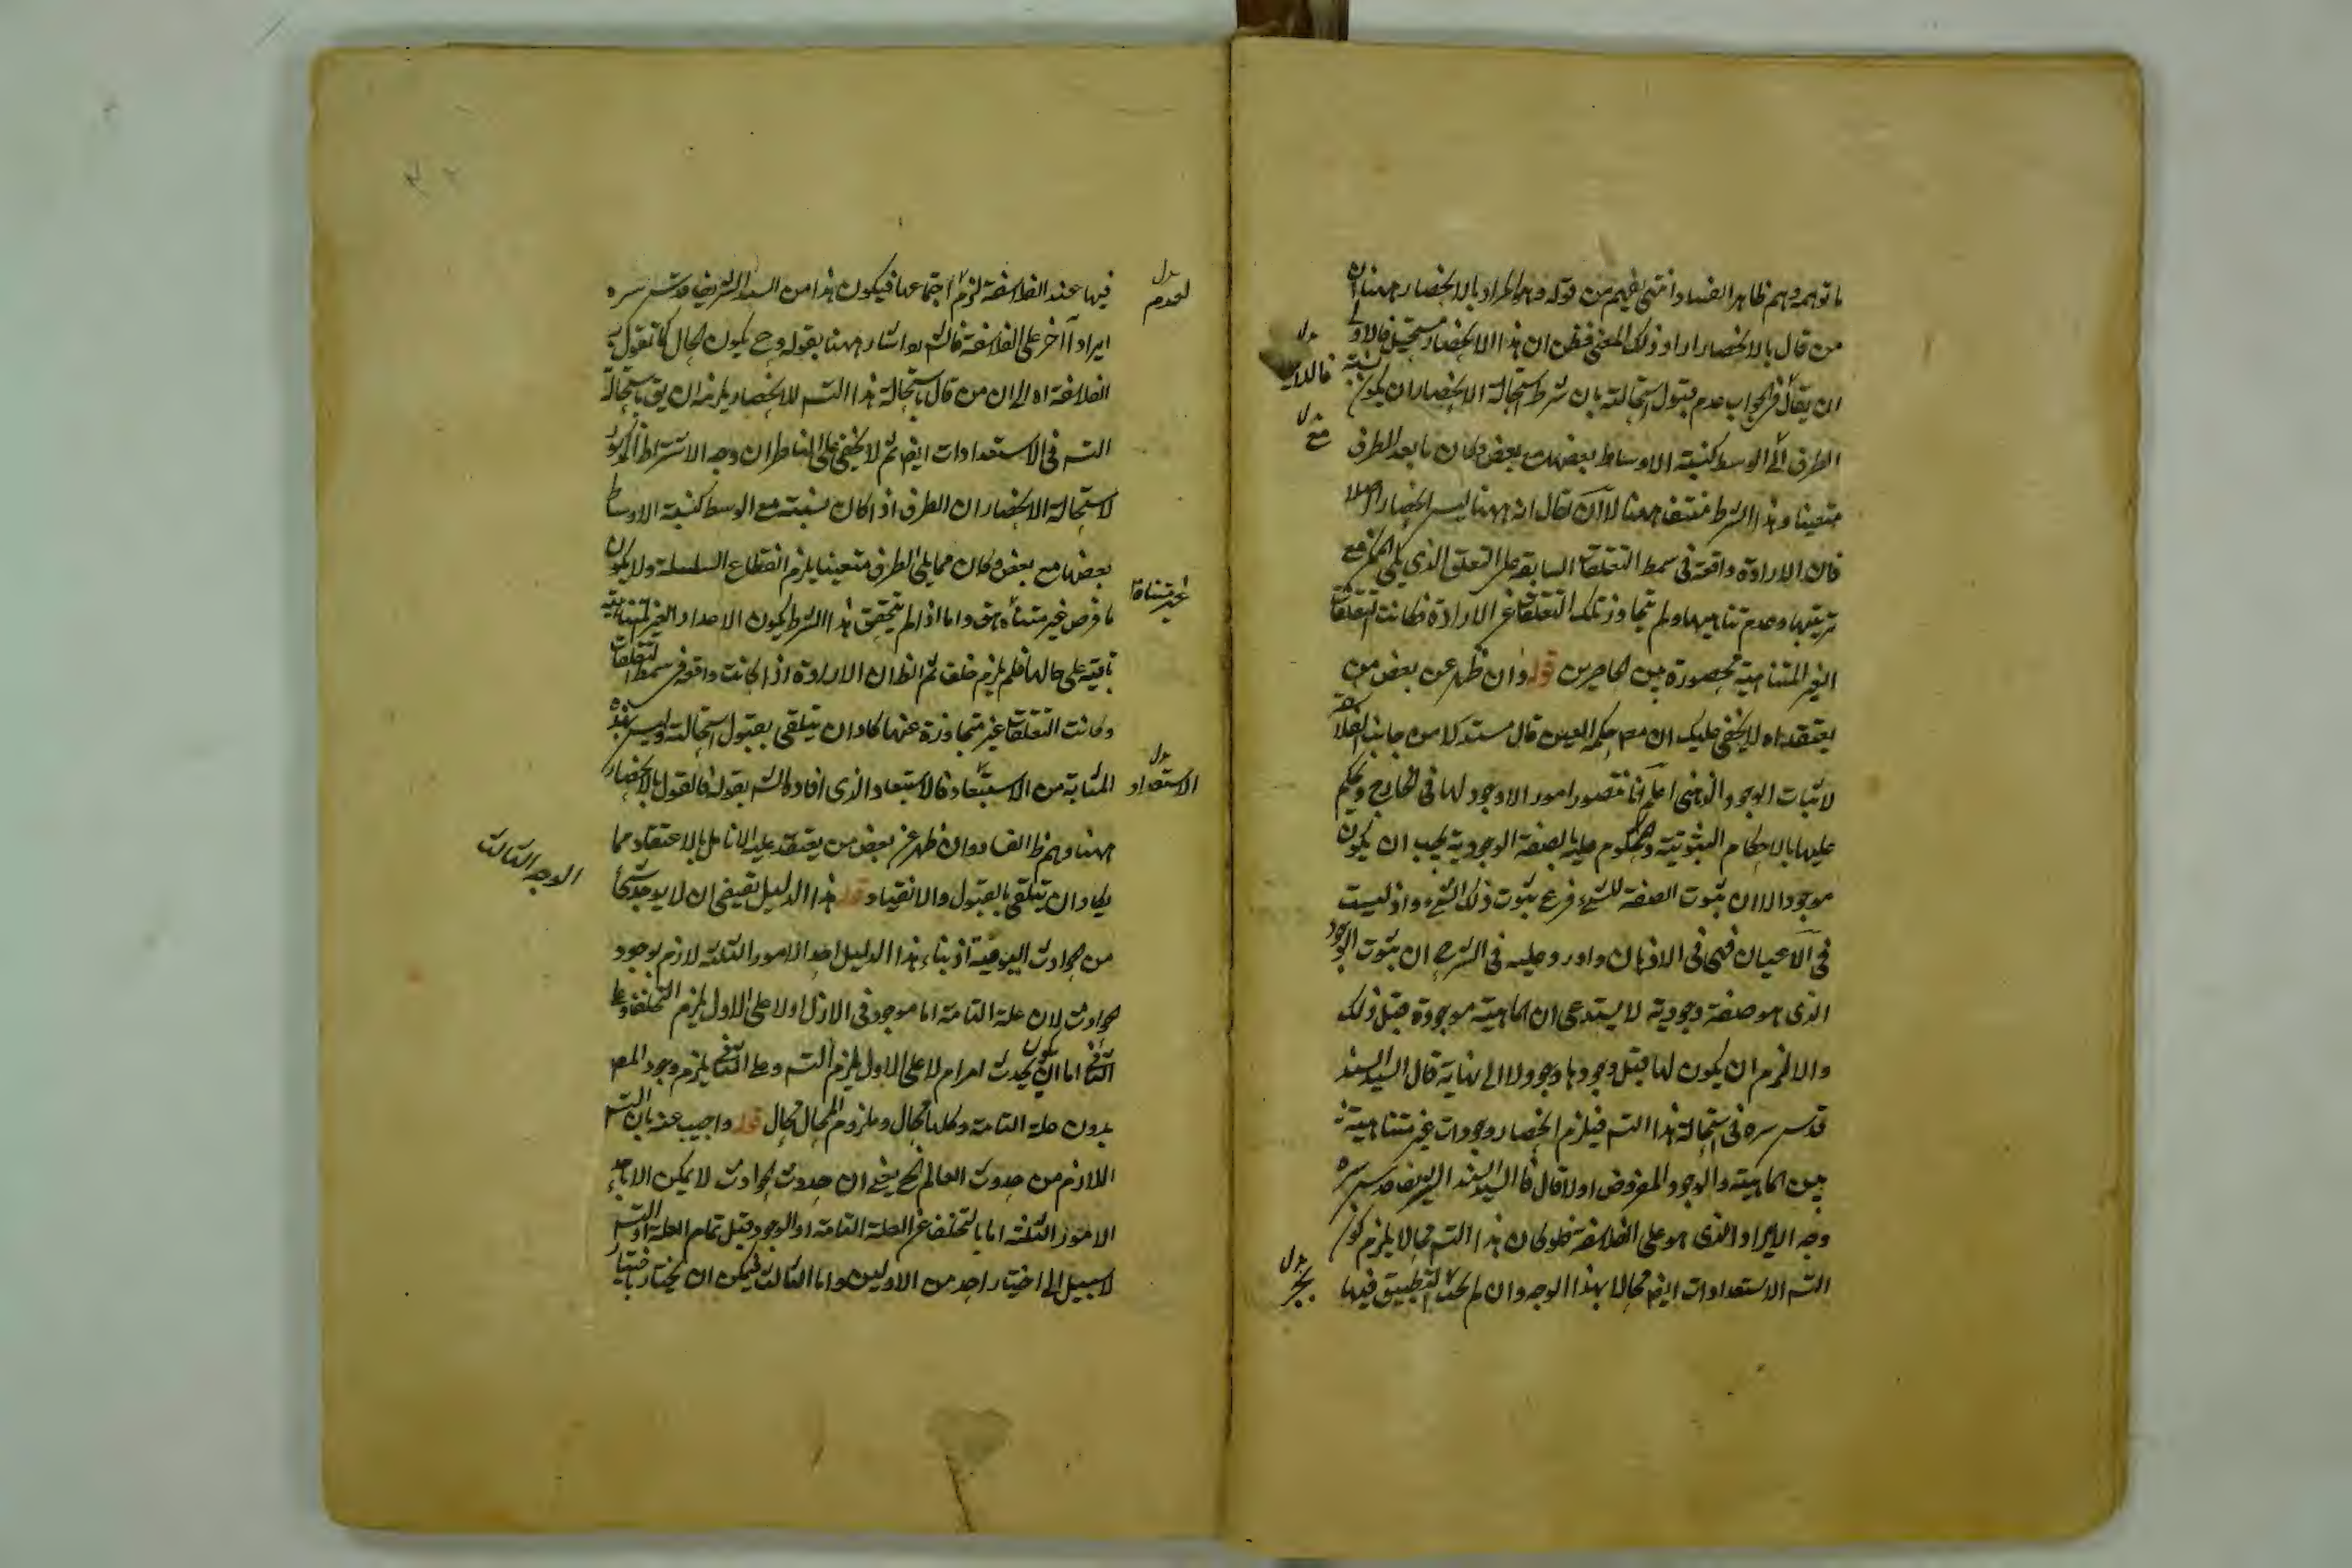 ما توهمه وهم ظاهر الفساد انتهى يفهم من قوله وهو المراد بالانحصار ههنا ان
من قال بالانحصار اراد ذلك المعنى فظن ان هذا الانحصار مستحيل فالاولى
ان يقال فى الجواب عدم قبول استحالته بان شرط استحالة الانحصار ان يكون نسبة
الطرف الى الوسط كنسبة الاوساط بعضها بعض وكان ما بعد الطرف
متعينا وهذا الشرط منتف ههنا لا ان يقال انه ههنا ليس انحصار اصلا
فان الارادة واقعة فى سمط التعلقات السابقة على التعلق الذى يلى الممكن مع
ترتبها وعدم تناهيها ولم يتجاوز تلك التعلقات عن الارادة فكانت التعلقات
الغير المتناهية محصورة بين الحاصرين قوله وان ظهر عن بعض من
يعتقد اه لا يخفى عليك ان مص حكمة العين قال مستدلا من جانب الفلاسفة
لاثبات الوجود الذهنى اعلم انا نتصور امورا لا وجود لها فى الخارج ونحكم
عليها بالاحكام الثبوتية والمحكوم عليه بالصفة الوجودية يجب ان يكون
موجودا لان ثبوت الصفة للشىء فرع ثبوت ذلك الشىء واذ ليست
فى الاعيان فهى فى الاذهان واورد عليه فى الشرح ان ثبوت الوجود
الذى هو صفة وجودية لا يستدعى ان الماهية موجودة قبل ذلك
والا لزم ان يكون لها قبل وجودها وجود لا الى نهاية قال السيد السند
قدس سره فى استحالة هذا التس فيلزم انحصار وجودات غير متناهية
بين الماهية والوجود المفروض اولا قال السيد السند الشريف قدس سره
وجه الايراد الذى هو على الفلاسفة فلو كان هذا التس محالا يلزم كون
التس الاستعدادات ايضا محالا بهذا الوجه وان لم يجر التطبيق فيها
بدل
مع
بدل
يجر
فيها عند الفلاسفة لزم اجتماعها فيكون هذا من السيد الشريف قدس سره
ايرادا آخر على الفلاسفة فالش اشار ههنا بقوله وح يكون الحال كما تقول
الفلاسفة اه الى ان من قال باستحالة هذا التس للانحصار يلزمه ان يق باستحالة
التس فى الاستعدادات ايضا ثم لا يخفى على الناظر ان وجه الاشتراط المذكور
لاستحالة الانحصار ان الطرف اذا كان نسبته مع الوسط كنسبة الاوساط
بعضها مع بعض وكان مما يلى الطرف متعينا يلزم انقطاع السلسلة ولا يكون
ما فرض غير متناه هف واما اذا لم يتحقق هذا الشرط يكون الاعداد الغير المتناهية
باقية على حالها فلم يلزم خلف ثم الظ ان الارادة اذا كانت واقعة فى سمط التعلقات
وكانت التعلقات غير متجاوزة عنها كاد ان يتلقى بقبول استحالته وليس بهذه
المثابة من الاستبعاد فالاستبعاد الذى افاده الش بقوله فالقول بالانحصار
ههنا وهم ظ الفساد وان ظهر عن بعض من يعتقد عليه الانامل بالاعتقاد مما
يكاد ان يتلقى بالقبول والانقياد قوله هذا الدليل يقيضى ان لا يوجد شىء
من الحوادث اليومية اذ بناء هذا الدليل احد الامور الثلثة لازم لوجود
الحوادث لان علة التامة اما موجود فى الازل اولا على الاول يلزم التخلف وعلى
الثانى اما ان يكون يحدث امر ام لا على الاول يلزم التس وعلى الثانى يلزم وجود المع
بدون علة التامة وكلها محال وملزوم المحال محال قوله واجيب عنه بان التس
اللازم من حدوث العالم الخ يعنى ان حدوث الحوادث لا يمكن الا باحد
الامور الثلثة اما بالتخلف عن العلة التامة او الوجود قبل تمام العلة او التس
لا سبيل الى اختيار احد من الاولين واما الثالث فيمكن ان يختار باختيار
بدل
لعدم
غير متناه
بدل
الاستعداد
الوجه الثالث